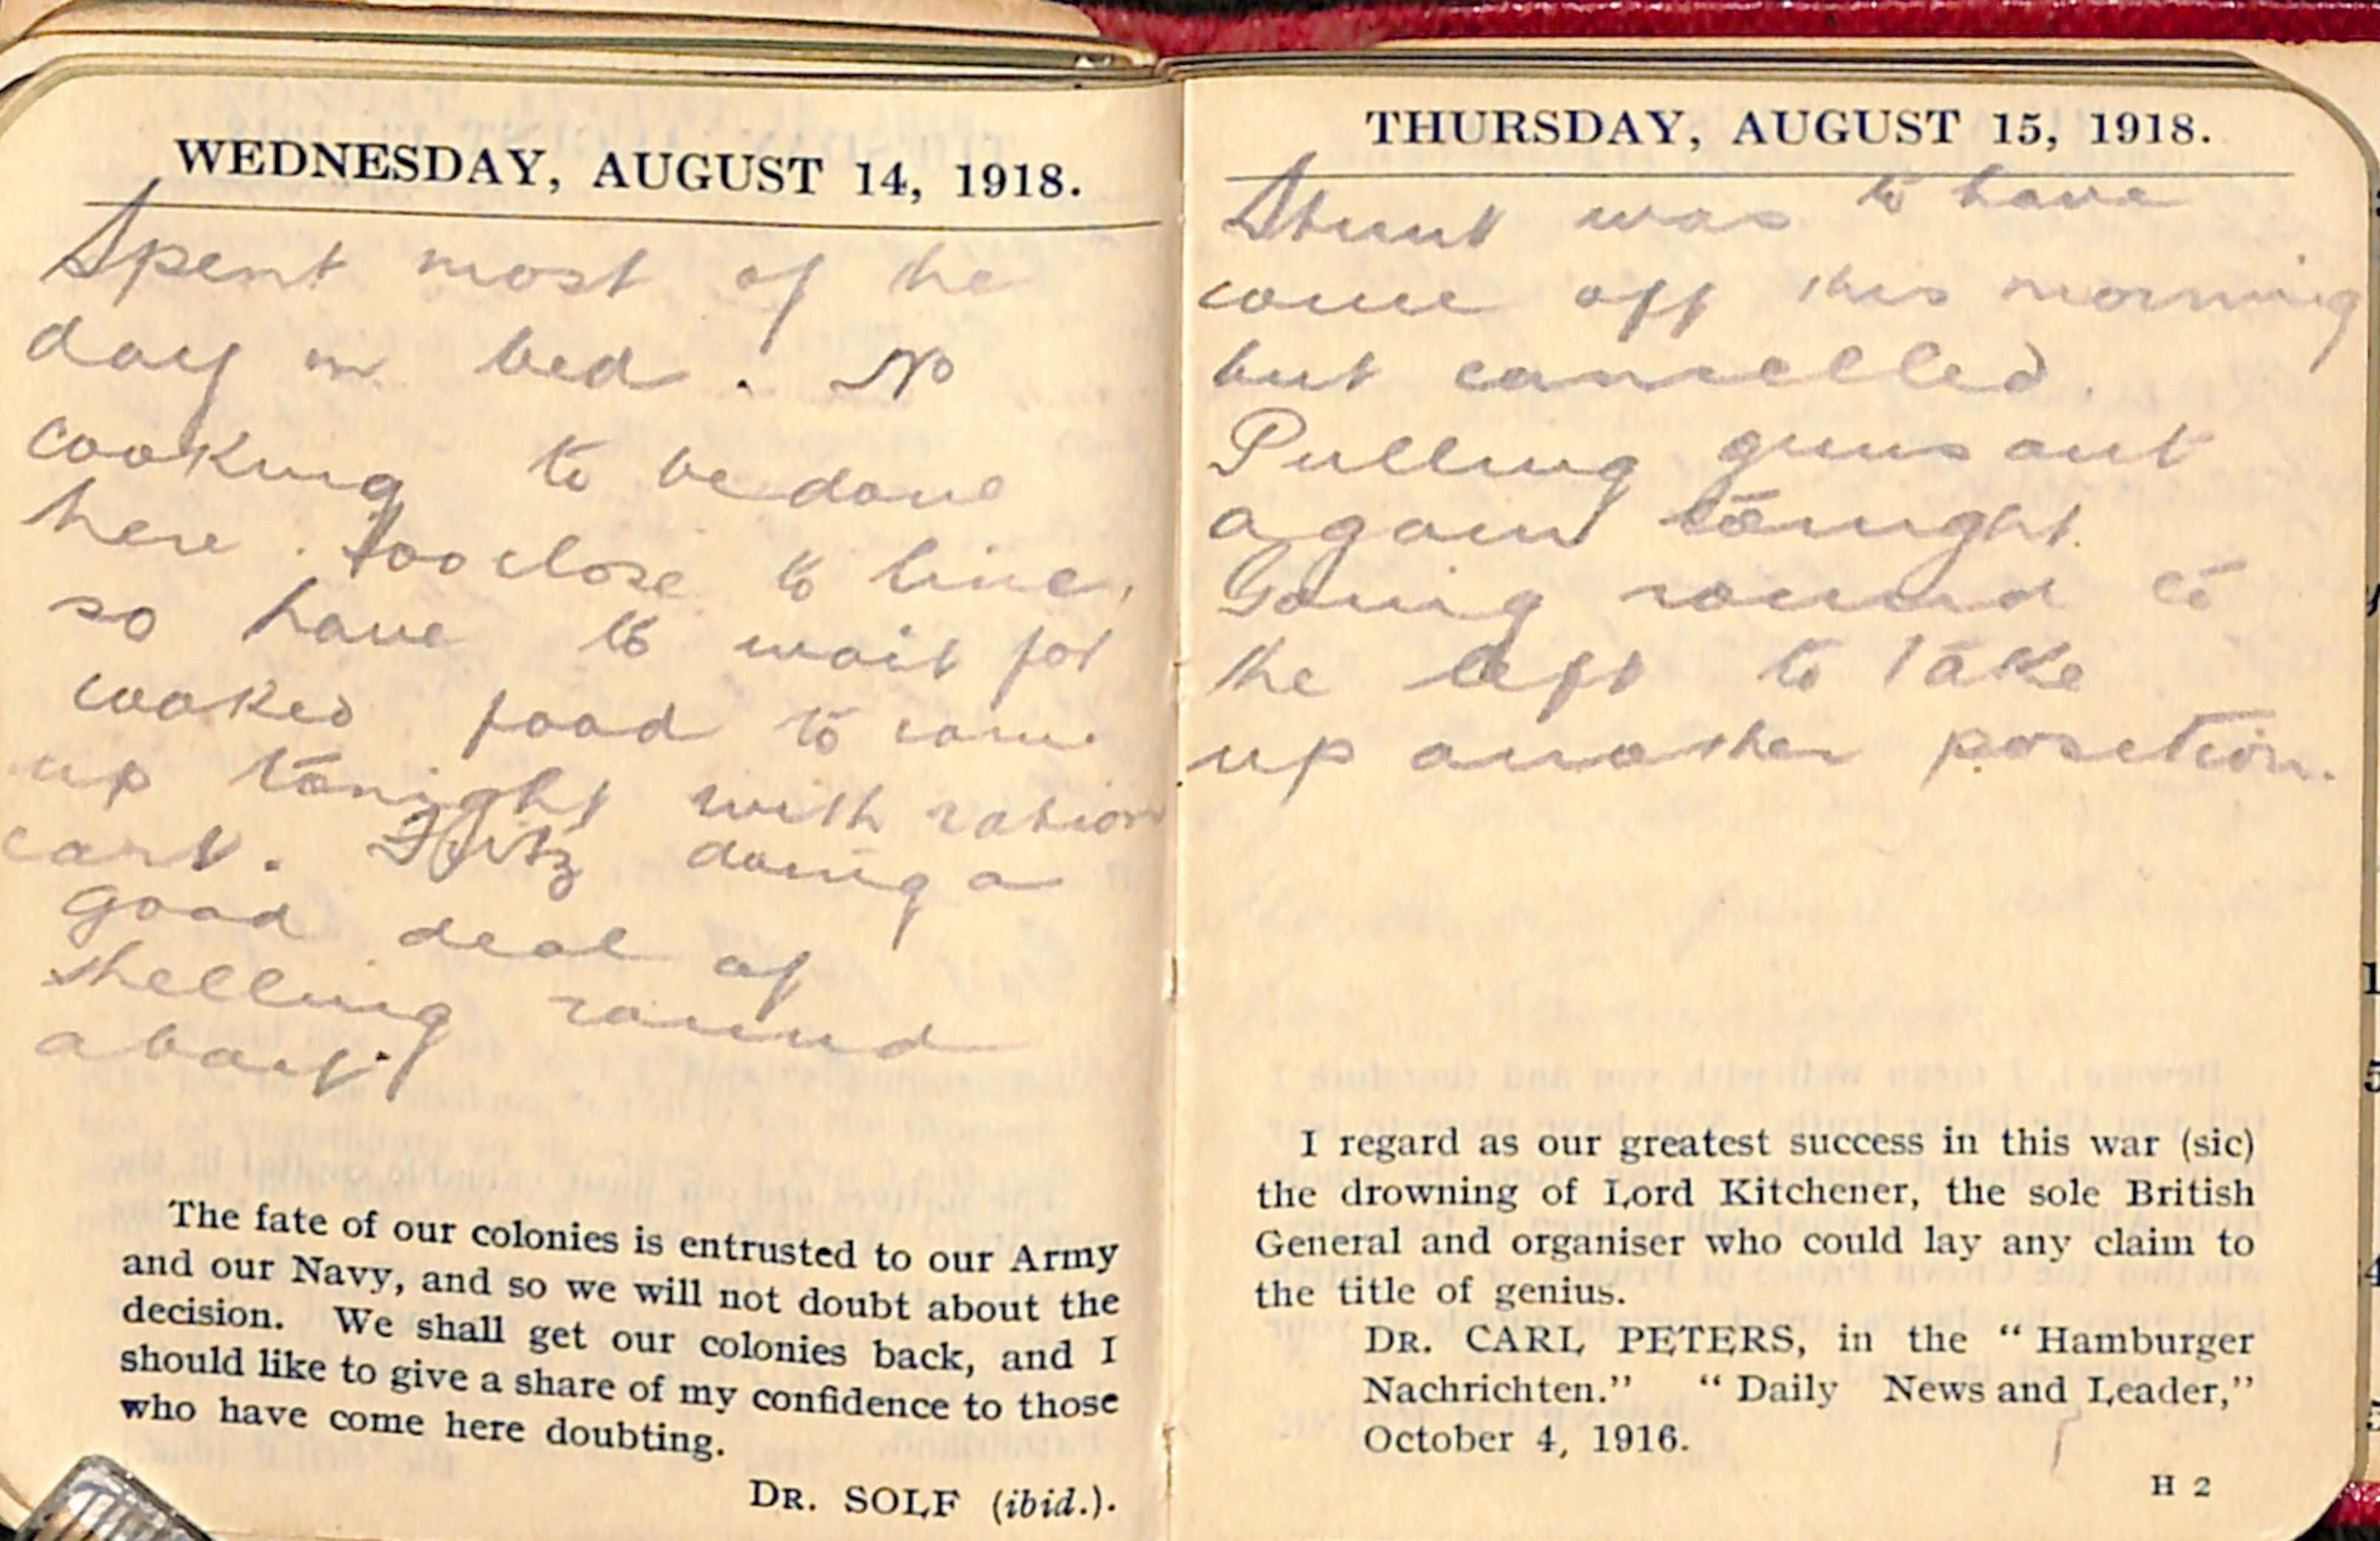 WEDNESDAY, AUGUST 14, 1918.
Spent most of the
day in bed. No
cooking to be done
here. Too close to line,
so have to wait for
cooked food to come
up tonight with ration
cart. Fritz doing a
good deal of
shelling round
about.
The fate of our colonies is entrusted to our Army
and our Navy, and so we will not doubt about the
decision. We shall get our colonies back, and I
should like to give a share of my confidence to those
who have come here doubting.
DR. SOLF (ibid.).
THURSDAY, AUGUST 15, 1918.
Stunt was to have
come off this morning
but cancelled.
Pulling guns out
again tonight.
Going round to
the left to take
up another position.
I regard as our greatest success in this war (sic)
the drowning of Lord Kitchener, the sole British
General and organiser who could lay any claim to
the title of genius.
DR. CARL PETERS, in the “Hamburger
Nachrichten.” “Daily News and Leader,”
October 4, 1916.
H 2